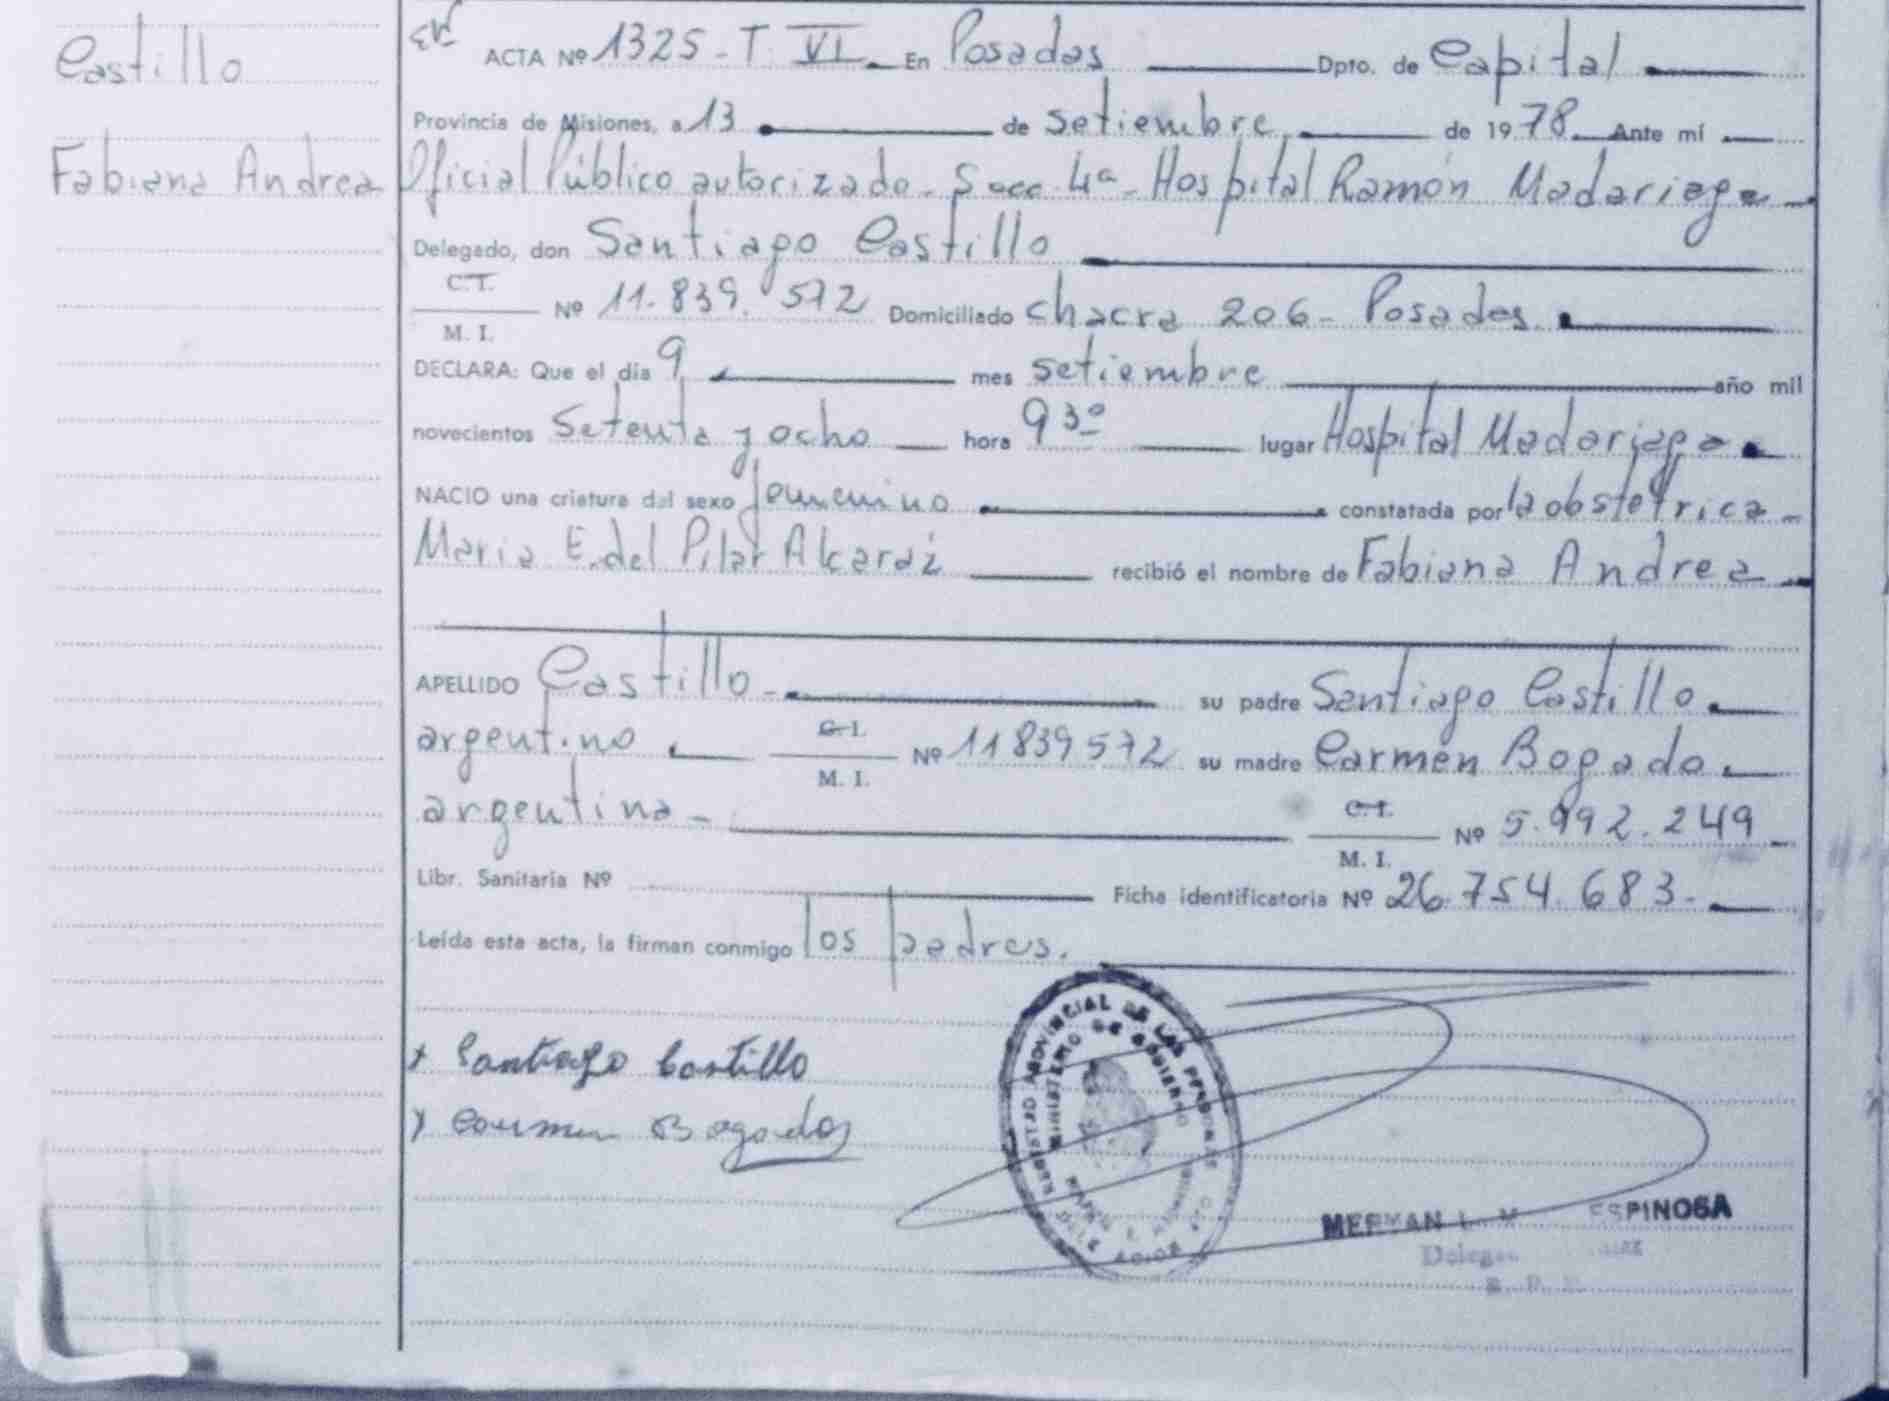 Castillo
Fabiana Andrea
ACTA Nº 1325 - T VI. En Posadas Dpto. de Capital
Provincia de Misiones, a 13 de setiembre de 1978 Ante mí
Oficial Público autorizado - Secc 4ª - Hospital Ramón Madariaga
Delegado, don Santiago Castillo
C.I.
M. I. Nº 11.839.572 Domiciliado chacra 206 - Posadas.
DECLARA: Que el día 9 mes setiembre año mil
novecientos setenta y ocho hora 9 30 lugar Hospital Madariaga
NACIO una criatura del sexo femenino constatada por la obstetrica
Maria E. del Pilar Alcaraz recibió el nombre de Fabiana Andrea
APELLIDO Castillo su padre Santiago Castillo
argentino C.I. M. I. Nº 11839572 su madre Carmen Bogado
argentina C.I. M. I. Nº 5.992.249
Libr. Sanitaria Nº Ficha identificatoria Nº 26.754.683.
Leída esta acta, la firman conmigo los padres.
Santiago Castillo
Carmen Bogado
REGISTRO PROVINCIAL DE LAS PERSONAS
MINISTERIO DE GOBIERNO
ESPINOSA